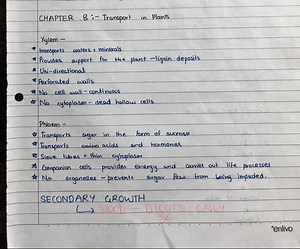 CHAPTER 8:- Transport in Plants
Xylem -
* transports waters + minerals
* Provides support for the plant - lignin deposits
* Uni-directional
* Perforated walls
* No cell wall - continuous
* No cytoplasm - dead hollow cells
Phloem -
☆ Transports sugar in the form of sucrose
☆ Transports amino acids and hormones
☆ Sieve tubes + thin cytoplasm
☆ Companion cells provides energy and carries out life processes
☆ No organelles - prevents sugar flow from being impeded.
SECONDARY GROWTH
↳ WOOD - DICOTS ONLY
enlivo